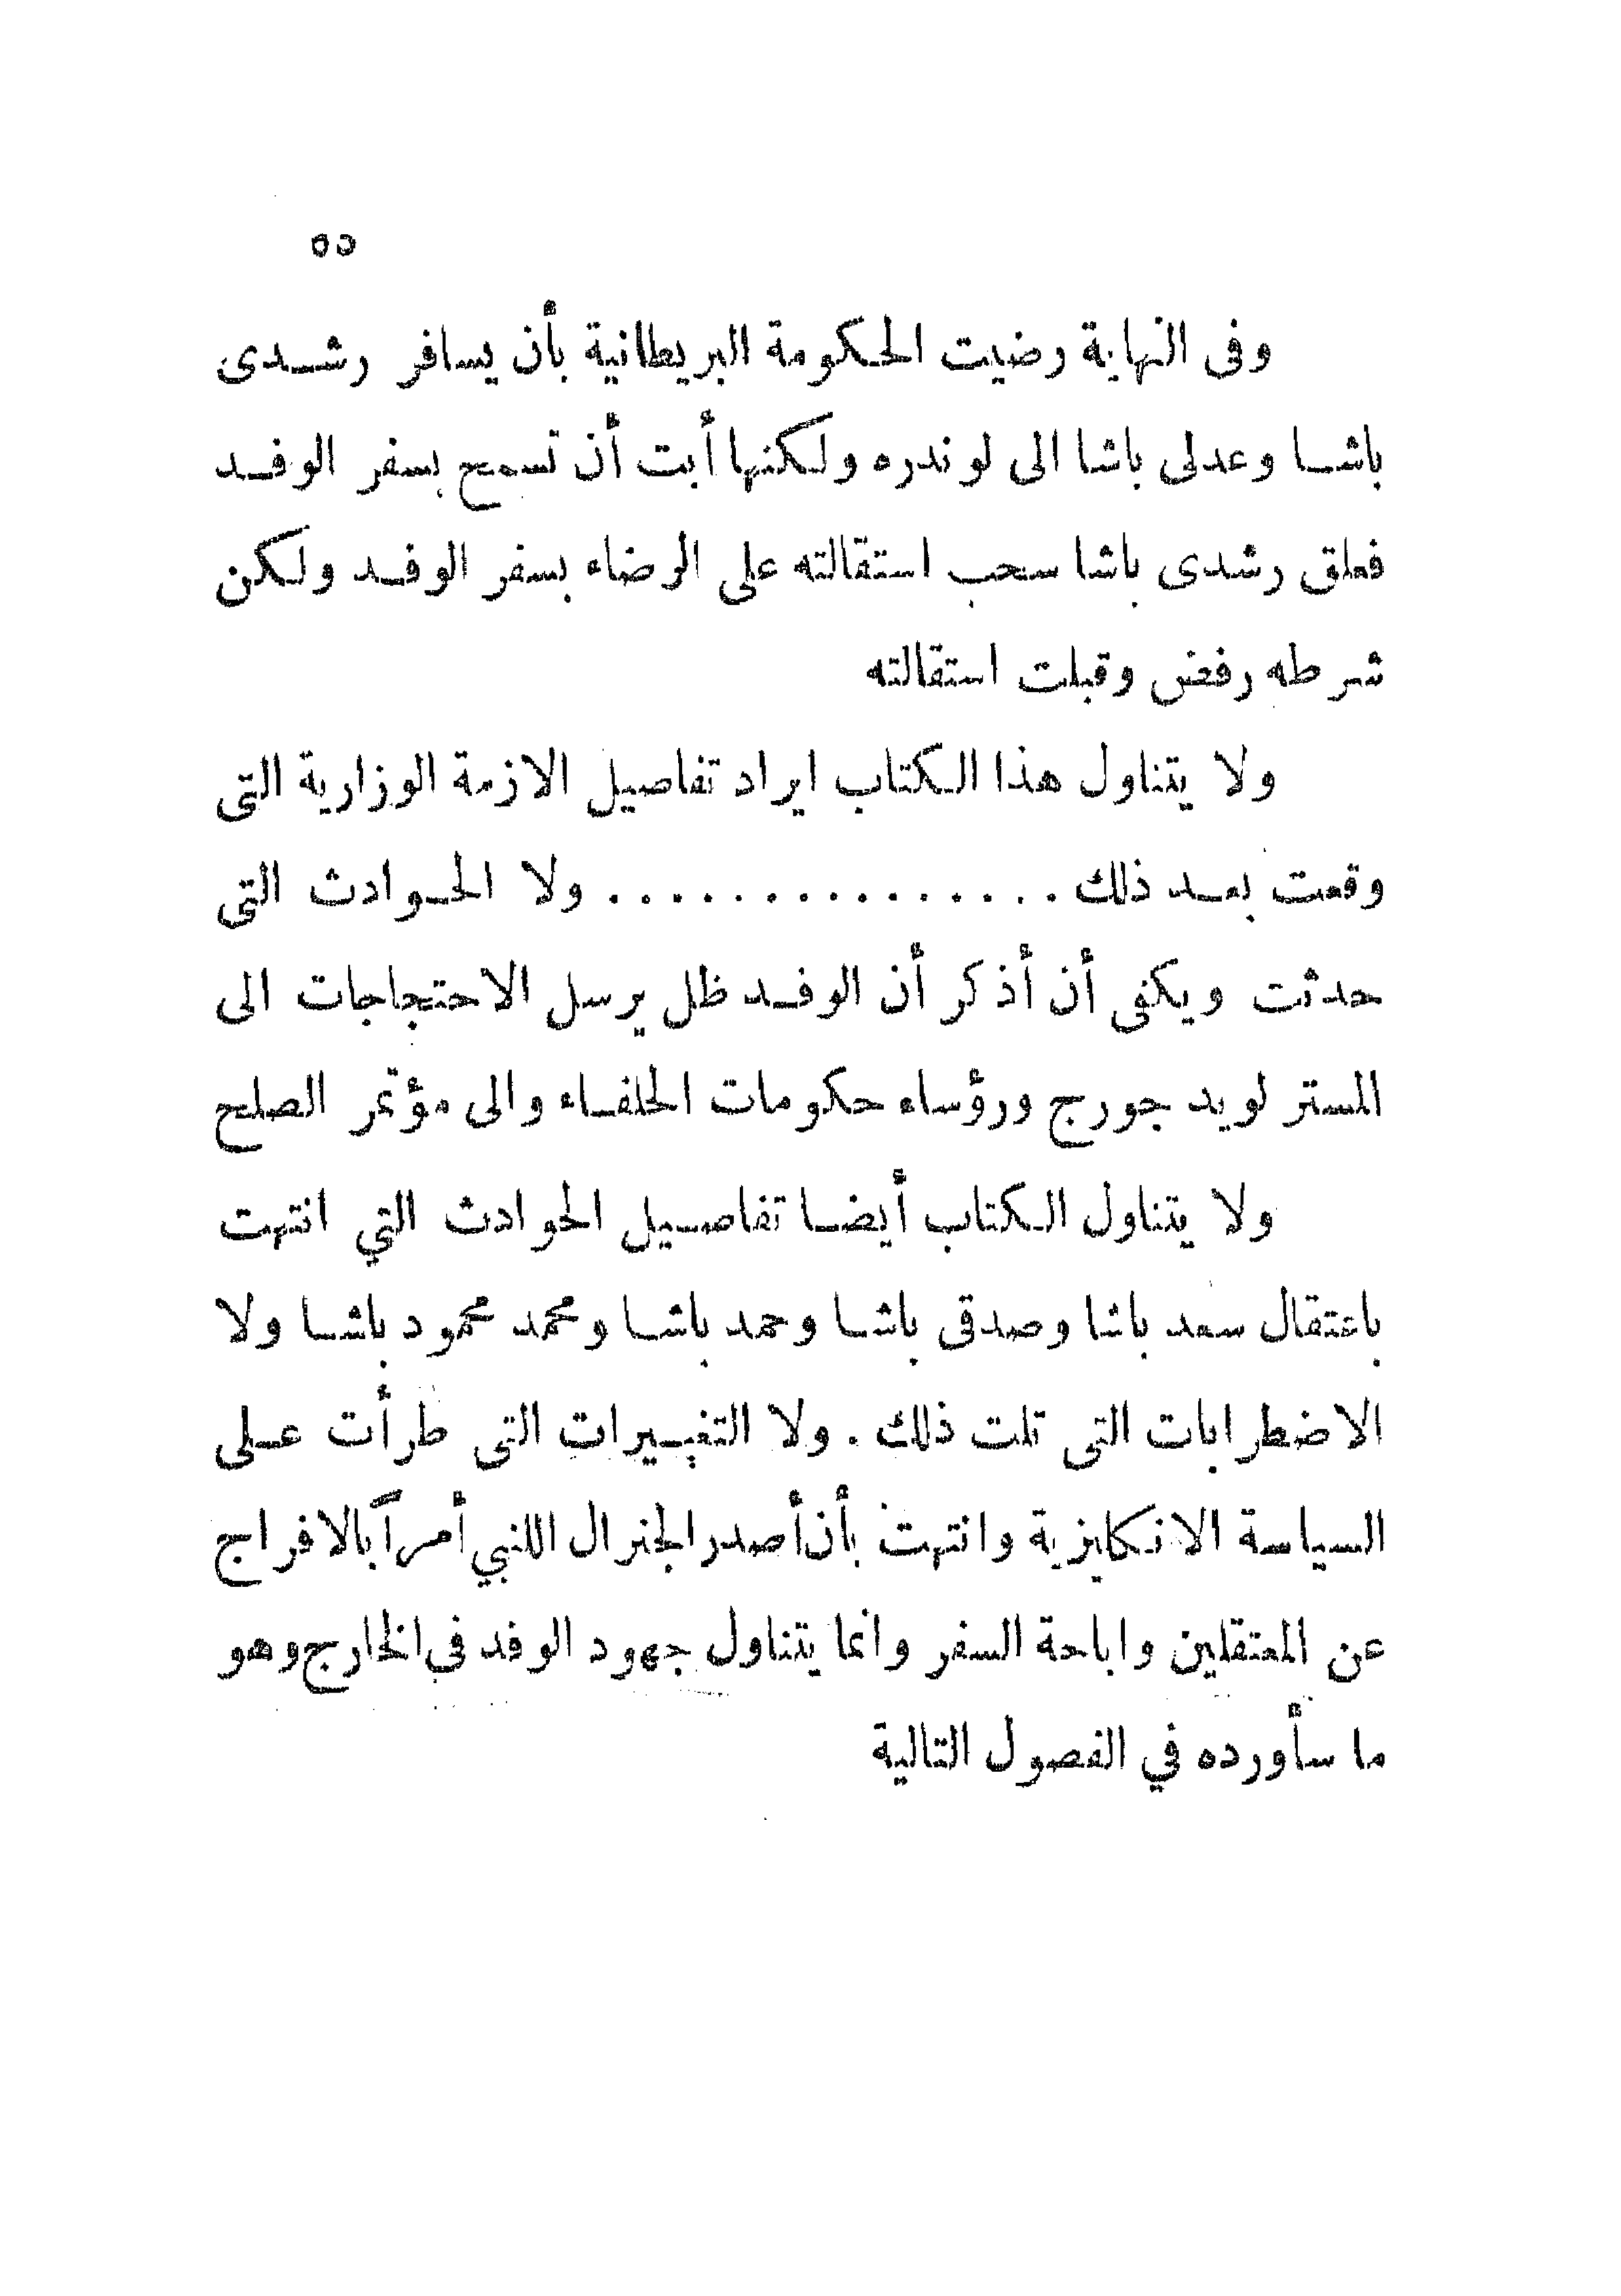 ٥٥
وفى النهاية رضيت الحكومة البريطانية بأن يسافر رشدى
باشا وعدلى باشا الى لوندره ولكنها أبت أن تسمح بسفر الوفد
فعلق رشدى باشا سحب استقالته على الرضاء بسفر الوفد ولكن
شرطه رفض وقبلت استقالته
ولا يتناول هذا الكتاب ايراد تفاصيل الازمة الوزارية التى
وقعت بعد ذلك . . . . . . . . . . . . . . . . ولا الحوادث التى
حدثت ويكفى أن أذكر أن الوفد ظل يرسل الاحتجاجات الى
المستر لويد جورج ورؤساء حكومات الحلفاء والى مؤتمر الصلح
ولا يتناول الكتاب أيضا تفاصيل الحوادث التي انتهت
باعتقال سعد باشا وصدقى باشا وحمد باشا ومحمد محمود باشا ولا
الاضطرابات التى تلت ذلك . ولا التغييرات التى طرأت على
السياسة الانكليزية وانتهت بأن أصدر الجنرال اللنبي أمراً بالافراج
عن المعتقلين واباحة السفر وانما يتناول جهود الوفد فى الخارج وهو
ما سأورده في الفصول التالية